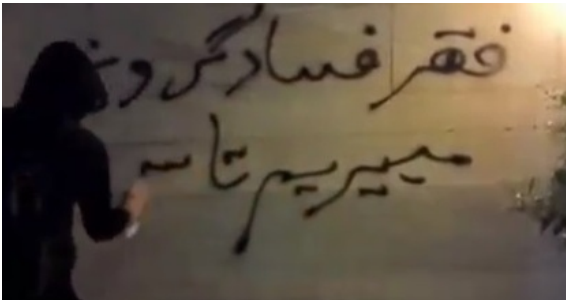 فقر فساد گرونی
میریم تا